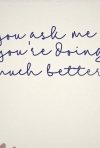 you ask me
you're doing
much better